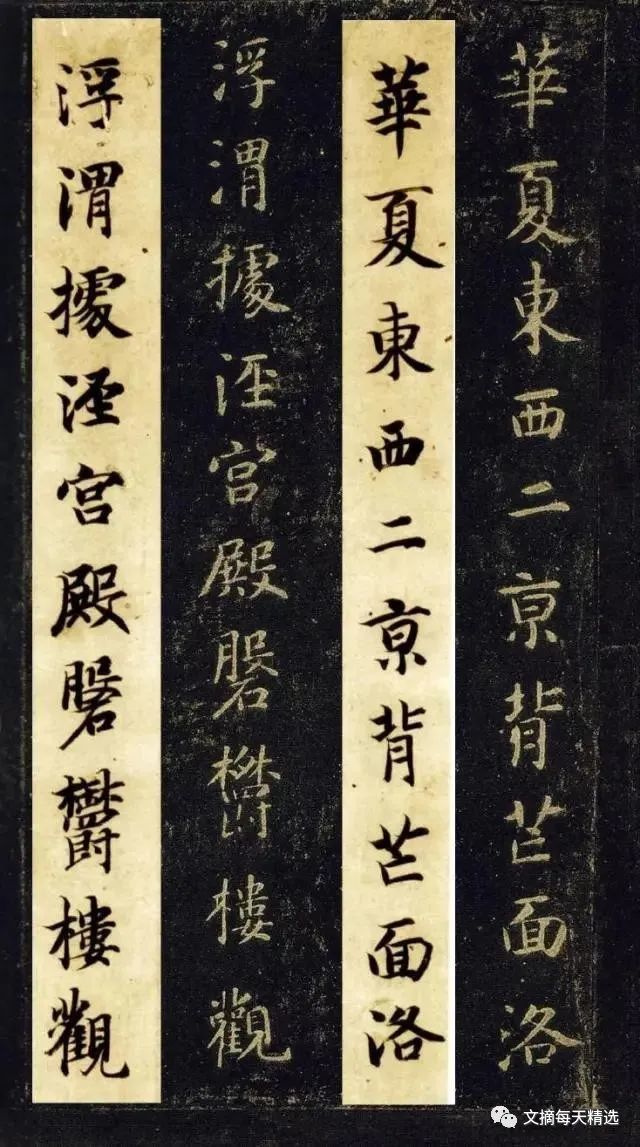 華夏東西二京背芒面洛
華夏東西二京背芒面洛
浮渭據涇宮殿磐欝樓觀
浮渭據涇宮殿磐欝樓觀
文摘每天精选